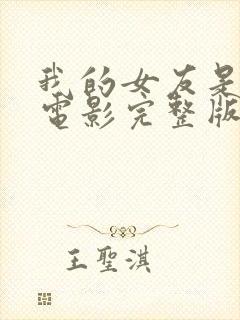 我的女友是
電影完整版
王聖淇